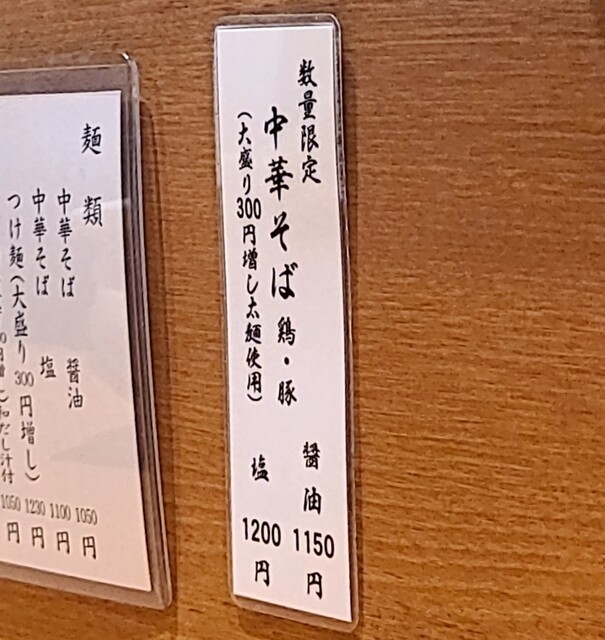 数量限定
中華そば 鶏・豚
(大盛り300円増し太麺使用)
醤油 1150円
塩 1200円
麺類
中華そば 醤油 1050円
中華そば 塩 1100円
つけ麺(大盛り300円増し) 1230円
だし汁付 1050円